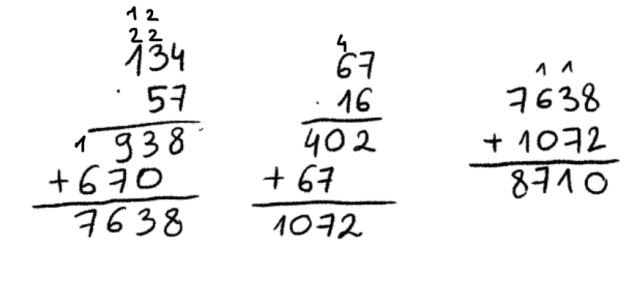 1 2
2 2
134
· 57
1 938
+ 670
7638
4
67
· 16
402
+ 67
1072
1 1
7638
+ 1072
8710